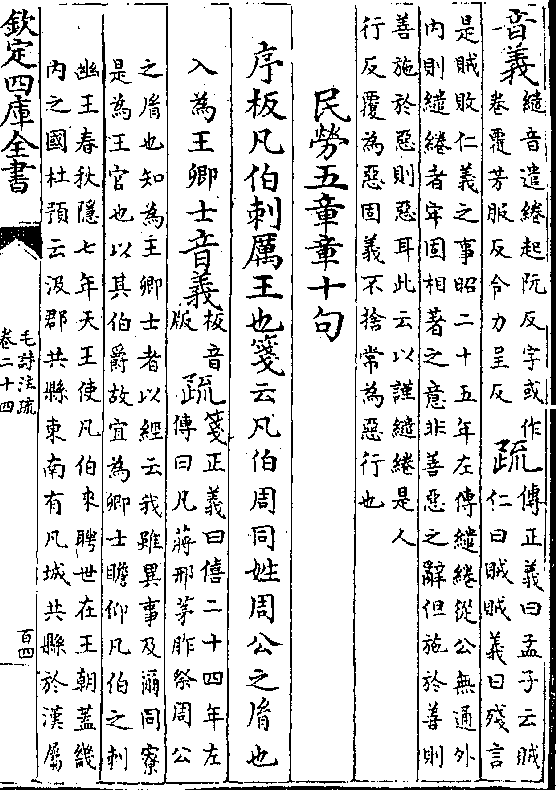 音義繾音遣綣起阮反字或作
卷覆芳服反令力呈反疏傳正義曰孟子云賊
仁曰賊賊義曰殘言
是賊敗仁義之事昭二十五年左傳繾綣從公無通外
內則繾綣者牢固相著之意非善惡之辭但施於善則
善施於惡則惡耳此云以謹繾綣是人
行反覆為惡固義不捨常為惡行也
民勞五章章十句
序板凡伯刺厲王也箋云凡伯周同姓周公之胤也
入為王卿士音義板音
版疏箋正義曰僖二十四年左
傳曰凡蔣邢茅胙祭周公
之胤也知為王卿士者以經云我雖異事及爾同寮
是為王官也以其伯爵故宜為卿士瞻仰凡伯之刺
幽王春秋隱七年天王使凡伯來聘世在王朝蓋畿
內之國杜預云汲郡共縣東南有凡城共縣於漢屬
欽定四庫全書
毛詩注疏
卷二十四
百四